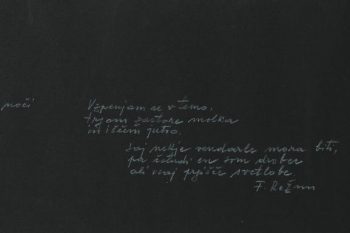 noči
Vzpenjam se v temo,
trgam zastore molka
in iščem jutro.
saj nekje vendarle mora biti,
pa četudi en sam drobec
ali vsaj pršišče svetlobe
F. Režun